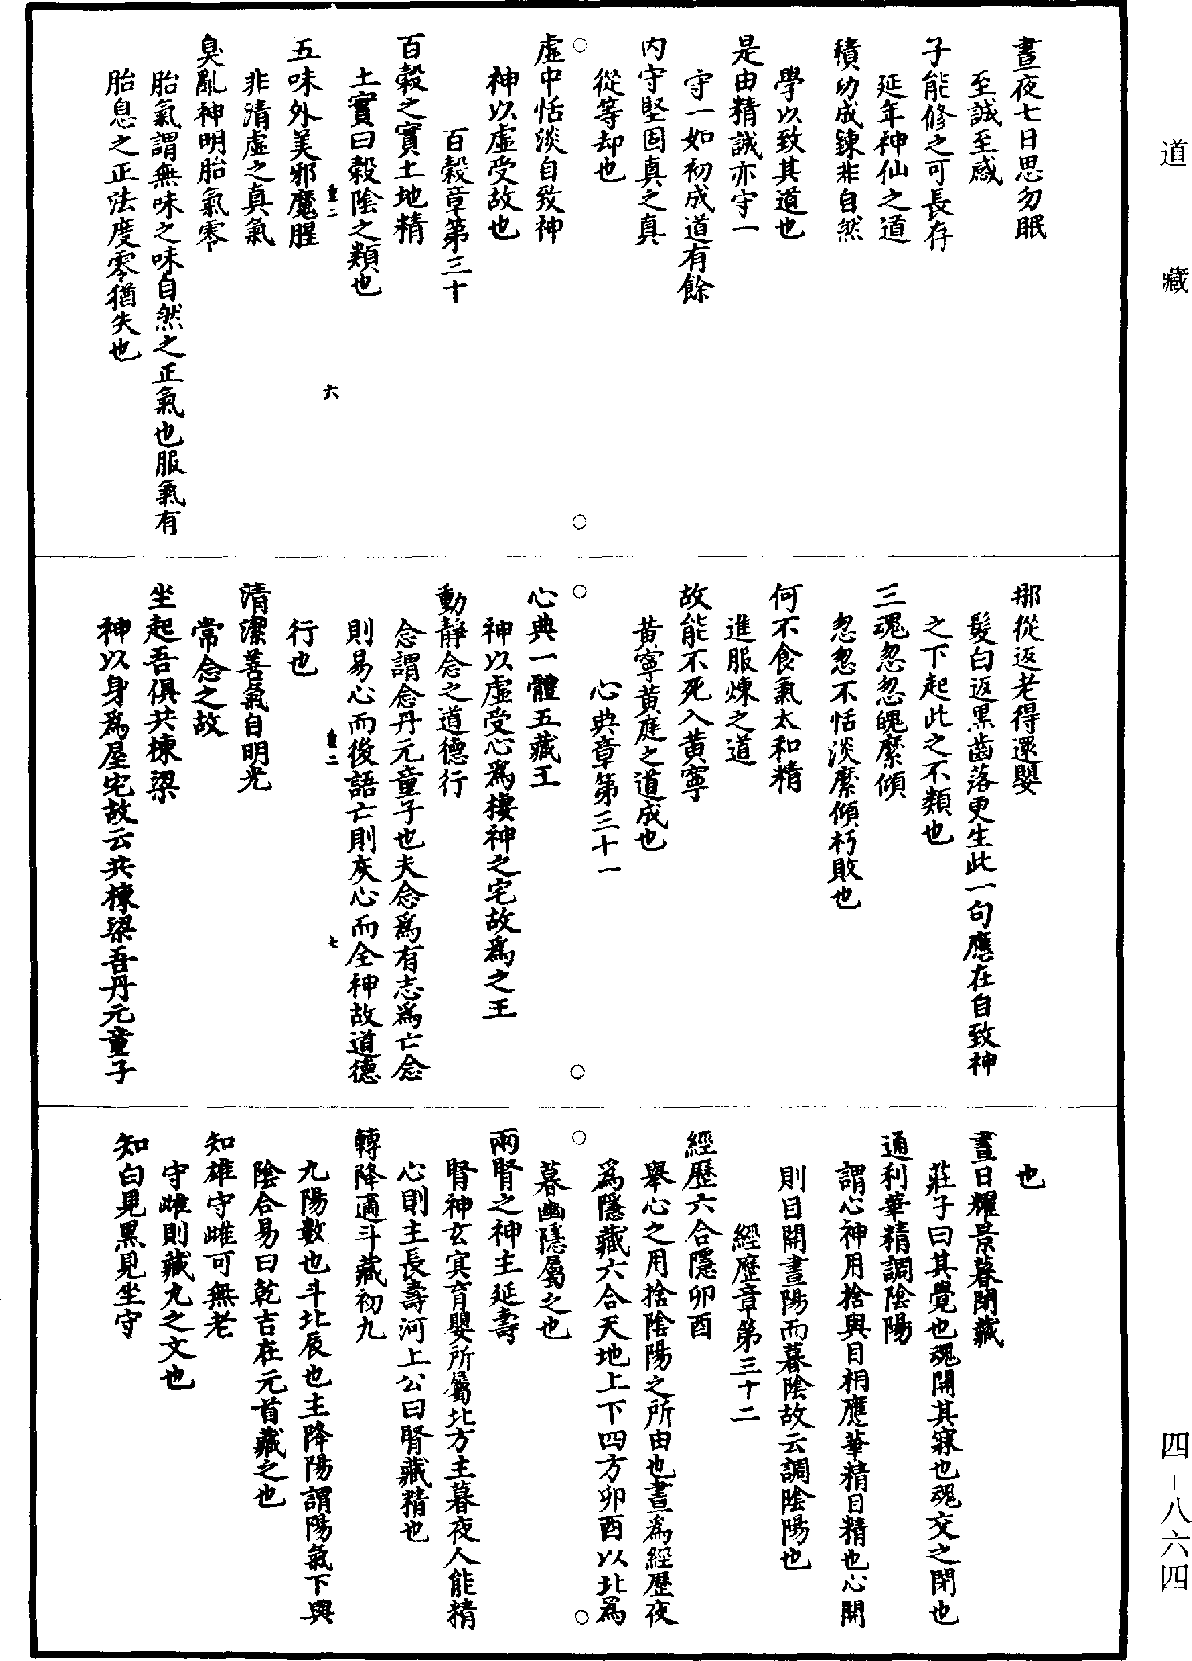 道藏
四－八六四
晝夜七日思勿眠
至誠至感
子能修之可長存
延年神仙之道
積功成鍊非自然
學以致其道也
是由精誠亦守一
守一如初成道有餘
內守堅固真之真
從等却也
虛中恬淡自致神
神以虛受故也
百穀章第三十
百穀之實土地精
土實曰穀陰之類也
五味外美邪魔腥
非清虛之真氣
臭亂神明胎氣零
胎氣謂無味之味自然之正氣也服氣有
胎息之正法度零猶失也
重二
六
那從返老得還嬰
髮白返黑齒落更生此一句應在自致神
之下起此之不類也
三魂忽忽魄縻傾
忽忽不恬淡縻傾朽敗也
何不食氣太和精
進服煉之道
故能不死入黃寧
黃寧黃庭之道成也
心典章第三十一
心典一體五藏王
神以虛受心為棲神之宅故為之王
動靜念之道德行
念謂念丹元童子也夫念為有志為亡念
則易心而後語亡則灰心而全神故道德
行也
清潔善氣自明光
常念之故
坐起吾俱共棟梁
神以身為屋宅故云共棟梁吾丹元童子
重二
七
也
晝日耀景暮閉藏
莊子曰其覺也魂開其寐也魂交之閉也
通利華精調陰陽
謂心神用捨與目相應華精目精也心開
則目開晝陽而暮陰故云調陰陽也
經歷章第三十二
經歷六合隱卯酉
舉心之用捨陰陽之所由也晝為經歷夜
為隱藏六合天地上下四方卯酉以北為
暮幽隱屬之也
兩腎之神主延壽
腎神玄冥育嬰所屬北方主暮夜人能精
心則主長壽河上公曰腎藏精也
轉降適斗藏初九
九陽數也斗北辰也主降陽謂陽氣下與
陰合易曰乾吉在元首藏之也
知雄守雌可無老
守雌則藏九之文也
知白見黑見坐守